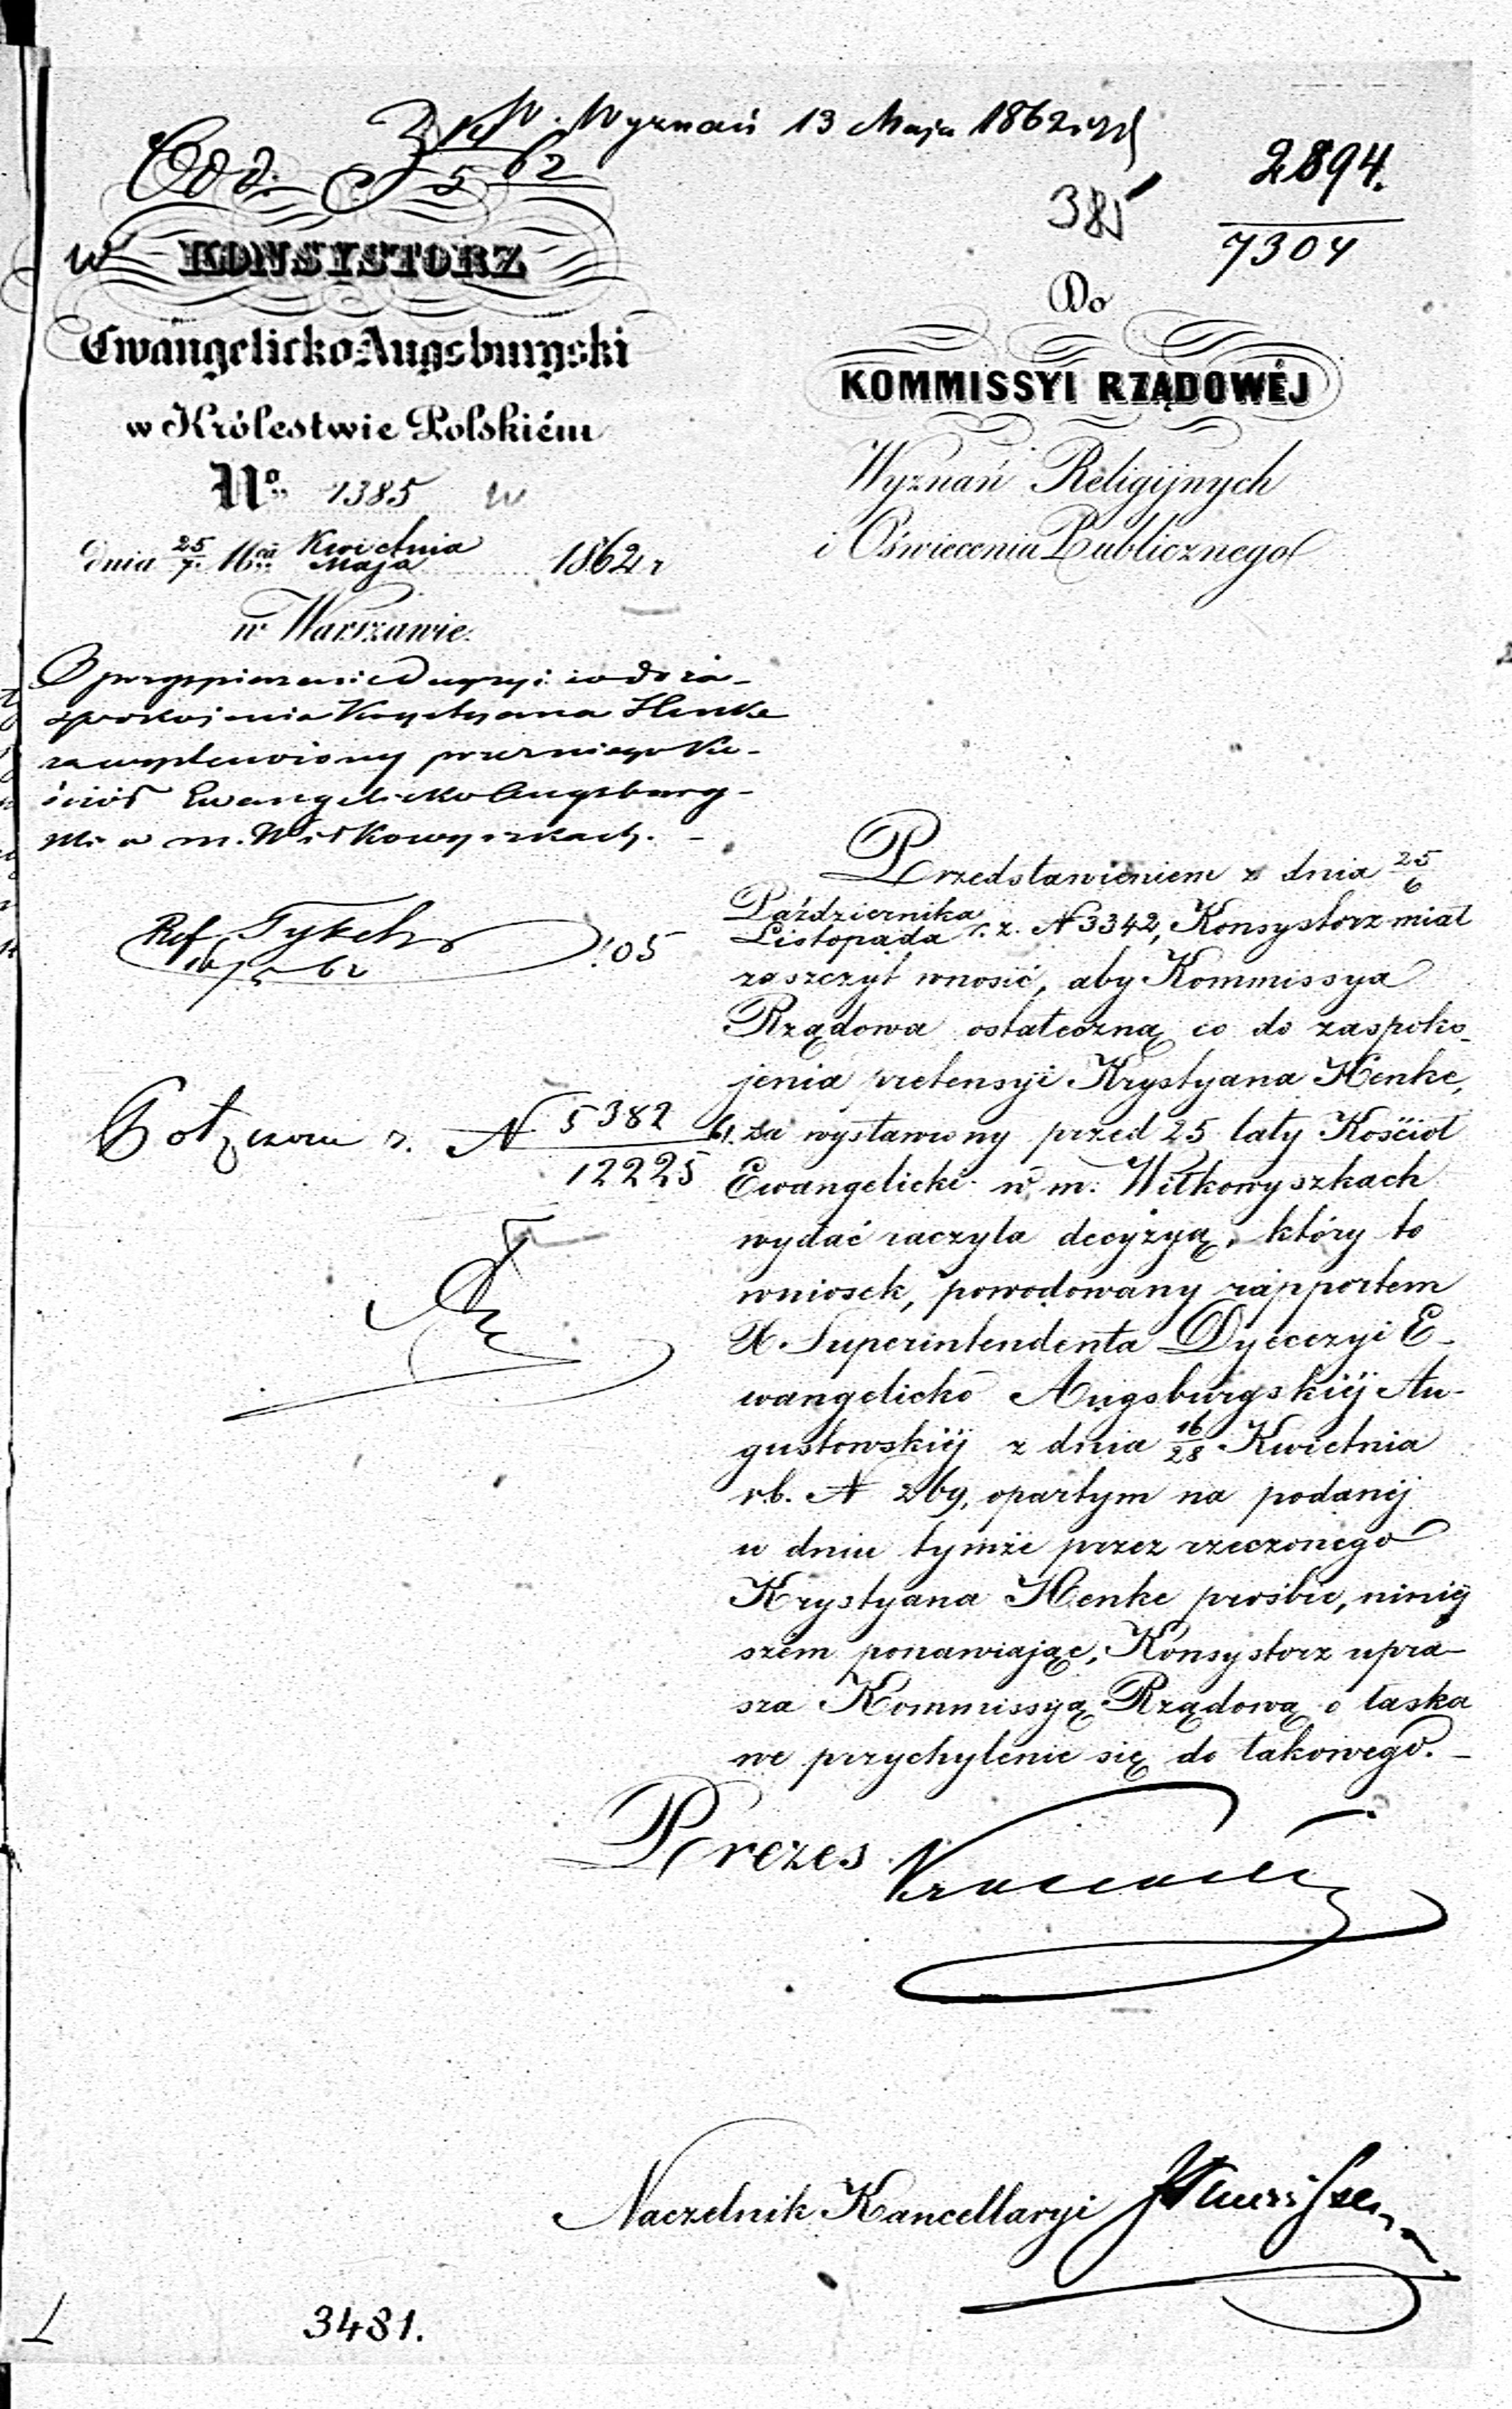 W. Wyznań 13 Maja 1862
385
2894.
7304
w KONSYSTORZ
Ewangelicko-Augsburgski
w Królestwie Polskiém
No. 1385 w
dnia 25/7 Mca Kwietnia/Maja 1862 r
w Warszawie.
O przyspieszenie Decyzyi co do za-
spokojenia Krystyana Henke
za wystawiony przez niego Ko-
ściół Ewangelicko Augsburg-
ski w m. Wiłkowyszkach. -
Ref
105
N 5382/12225 61.
Do
KOMMISSYI RZĄDOWÉJ
Wyznań Religijnych
i Oświecenia Publicznego
Przedstawieniem z dnia 25/6
Października/Listopada r. z. N 3342, Konsystorz miał
zaszczyt wnosić, aby Kommissya
Rządowa ostateczną co do zaspoko-
jenia pretensyi Krystyana Henke,
za wystawiony przed 25 laty Kościoł
Ewangelicki w m. Wiłkowyszkach
wydać raczyła decyzyą, który to
wniosek, powodowany rapportem
X. Superintendenta Dyecezyi E-
wangelicko Augsburgskiéj Au-
gustowskiéj z dnia 16/28 Kwietnia
r.b. N 269, opartym na podanéj
w dniu tymże przez rzeczonego
Krystyana Henke prośbie, niniéj
szem ponawiając, Konsystorz upra-
sza Kommissyą Rządową o łaska
we przychylenie się do takowego. -
Prezes
Naczelnik Kancellaryi
3481.